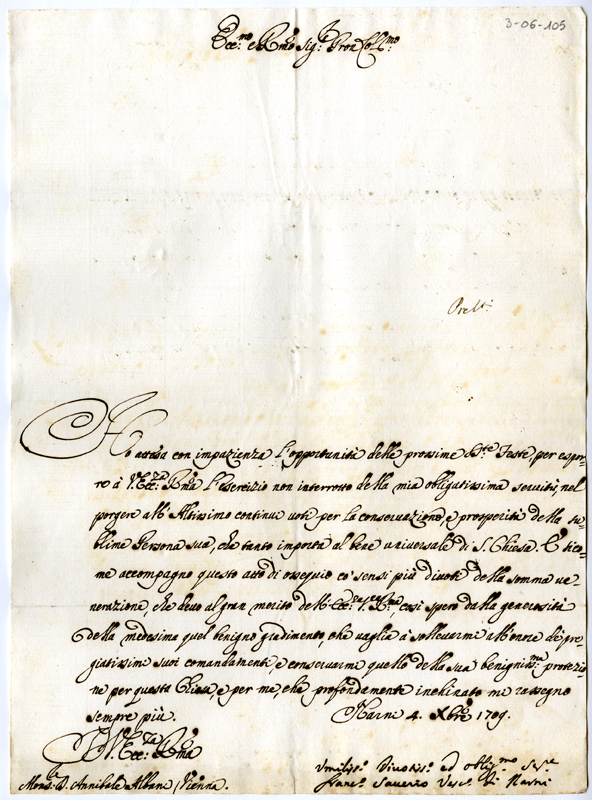 3-06-105
Ecc.mo e R.mo Sig.r Pron Coll.mo
Prel.ti
Ho attesa con impazienza l'opportunità delle prossime S.te Feste, per espor=
re à V. Ecc.za R.ma l'esercizio non interrotto della mia obligatissima servitù, nel
porgere all'Altissimo continui voti per la conservazione, e prosperità della su=
blime Persona sua, che tanto importa al bene universale di S. Chiesa. E sico=
me accompagno questo atto di ossequio co' sensi più divoti della somma ve=
nerazione, che devo al gran merito dell'Ecc.za V. R.ma così spero dalla generosità
della medesima quel benigno gradimento, che vaglia à sollevarmi all'onore de' pre=
giatissimi suoi comandamenti, e conservarmi quello della sua benignis.ma protezio=
ne per questa Chiesa, e per me, che profondamente inchinato me rassegno
sempre più.
Narni 4. Xbre 1709.
V. Ecc.za R.ma
Mons.r D. Annibale Albani, Vienna.
Umiliss.o Divotiss.o ed oblig.mo Ser.re
Franc.o Saverio Vesc.o di Narni